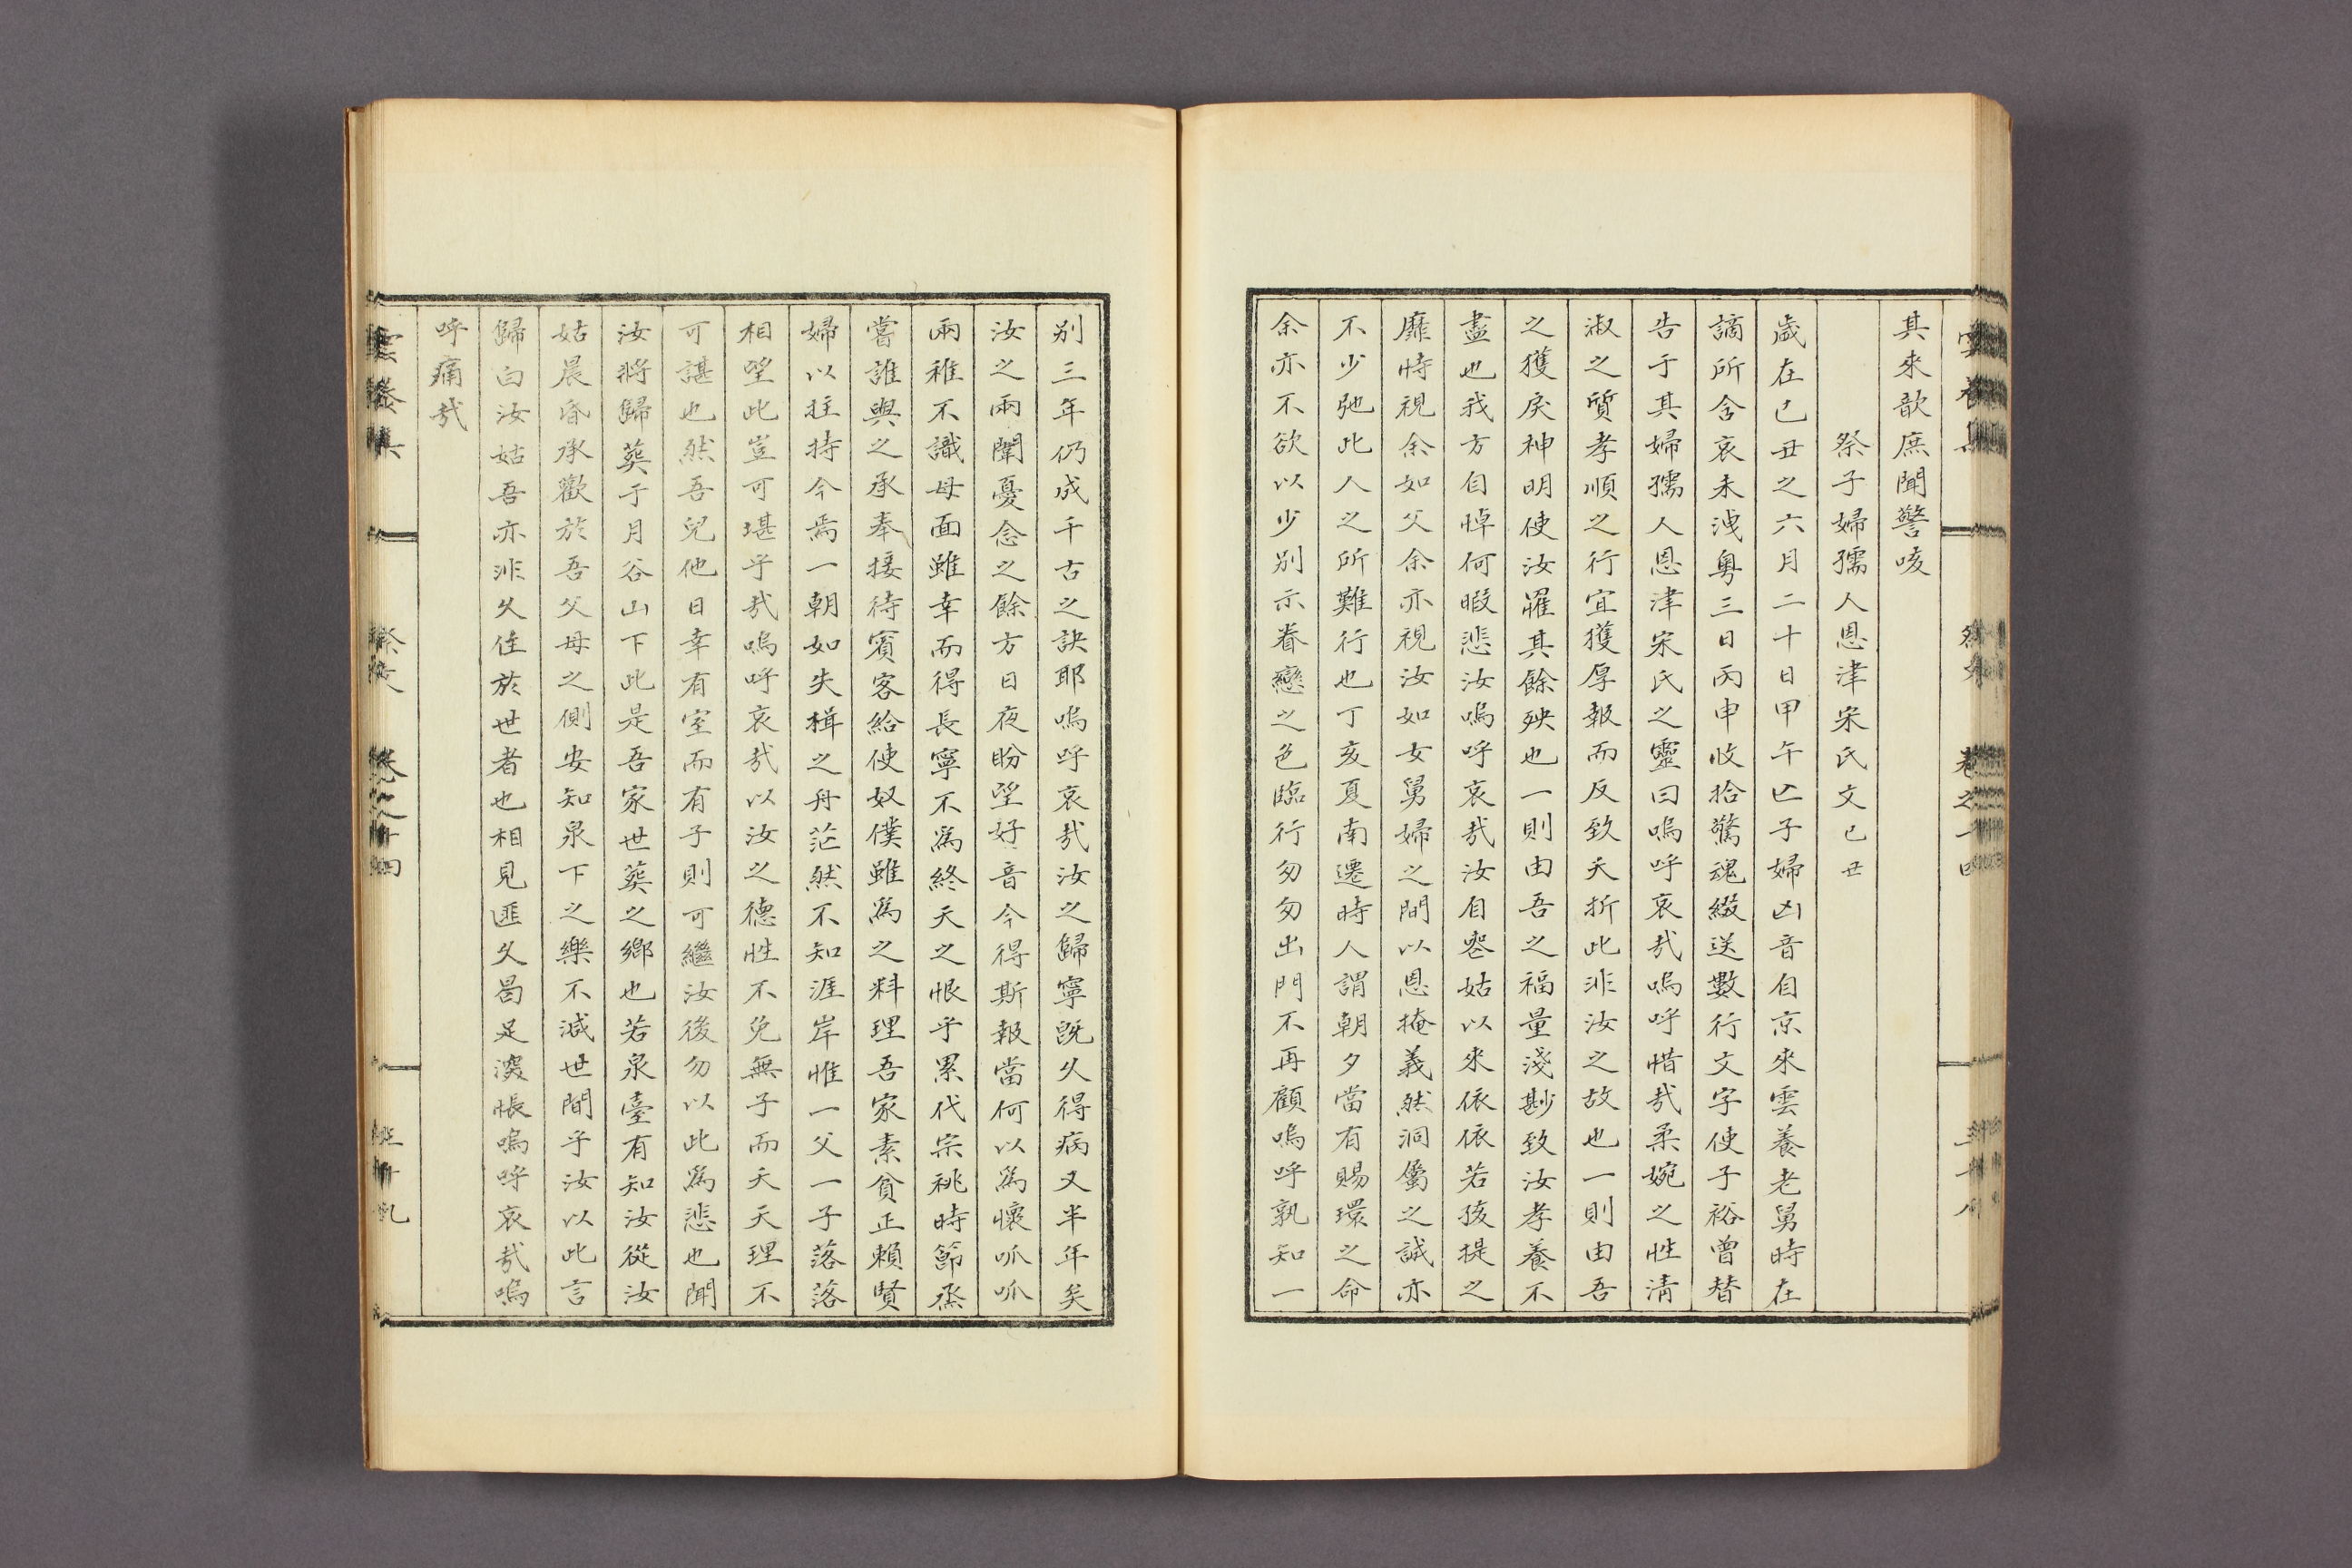 其來歆庶聞警咳
祭子婦孺人恩津宋氏文己丑
歲在己丑之六月二十日甲午亡子婦凶音自京來雲養老舅時在
謫所含哀未洩粤三日丙申收拾驚魂綴送數行文字使子裕曾替
告于其婦孺人恩津宋氏之靈曰嗚呼哀哉嗚呼惜哉柔婉之性淸
淑之質孝順之行宜獲厚報而反致夭折此非汝之故也一則由吾
之獲戾神明使汝罹其餘殃也一則由吾之福量淺尠致汝孝養不
盡也我方自悼何暇悲汝嗚呼哀哉汝自喪姑以來依依若孩提之
靡恃視余如父余亦視汝如女舅婦之間以恩掩義然洞屬之誠亦
不少弛此人之所難行也丁亥夏南遷時人謂朝夕當有賜環之命
余亦不欲以少別示眷戀之色臨行匆匆出門不再顧嗚呼孰知一
別三年仍成千古之訣耶嗚呼哀哉汝之歸寧旣久得病又半年矣
汝之兩闈憂念之餘方日夜盼望好音今得斯報當何以爲懷呱呱
兩稚不識母面雖幸而得長寧不爲終天之恨乎累代宗祧時節烝
嘗誰與之承奉接待賓客給使奴僕雖爲之料理吾家素貧正賴賢
婦以拄持今焉一朝如失楫之舟茫然不知涯岸惟一父一子落落
相望此豈可堪乎哉嗚呼哀哉以汝之德性不免無子而夭天理不
可諶也然吾兒他日幸有室而有子則可繼汝後勿以此爲悲也聞
汝將歸葬于月谷山下此是吾家世葬之鄕也若泉臺有知汝從汝
姑晨昏承歡於吾父母之側安知泉下之樂不減世間乎汝以此言
歸白汝姑吾亦非久住於世者也相見匪久曷足深悵嗚呼哀哉嗚
呼痛哉
雲養集 祭文 卷之十四